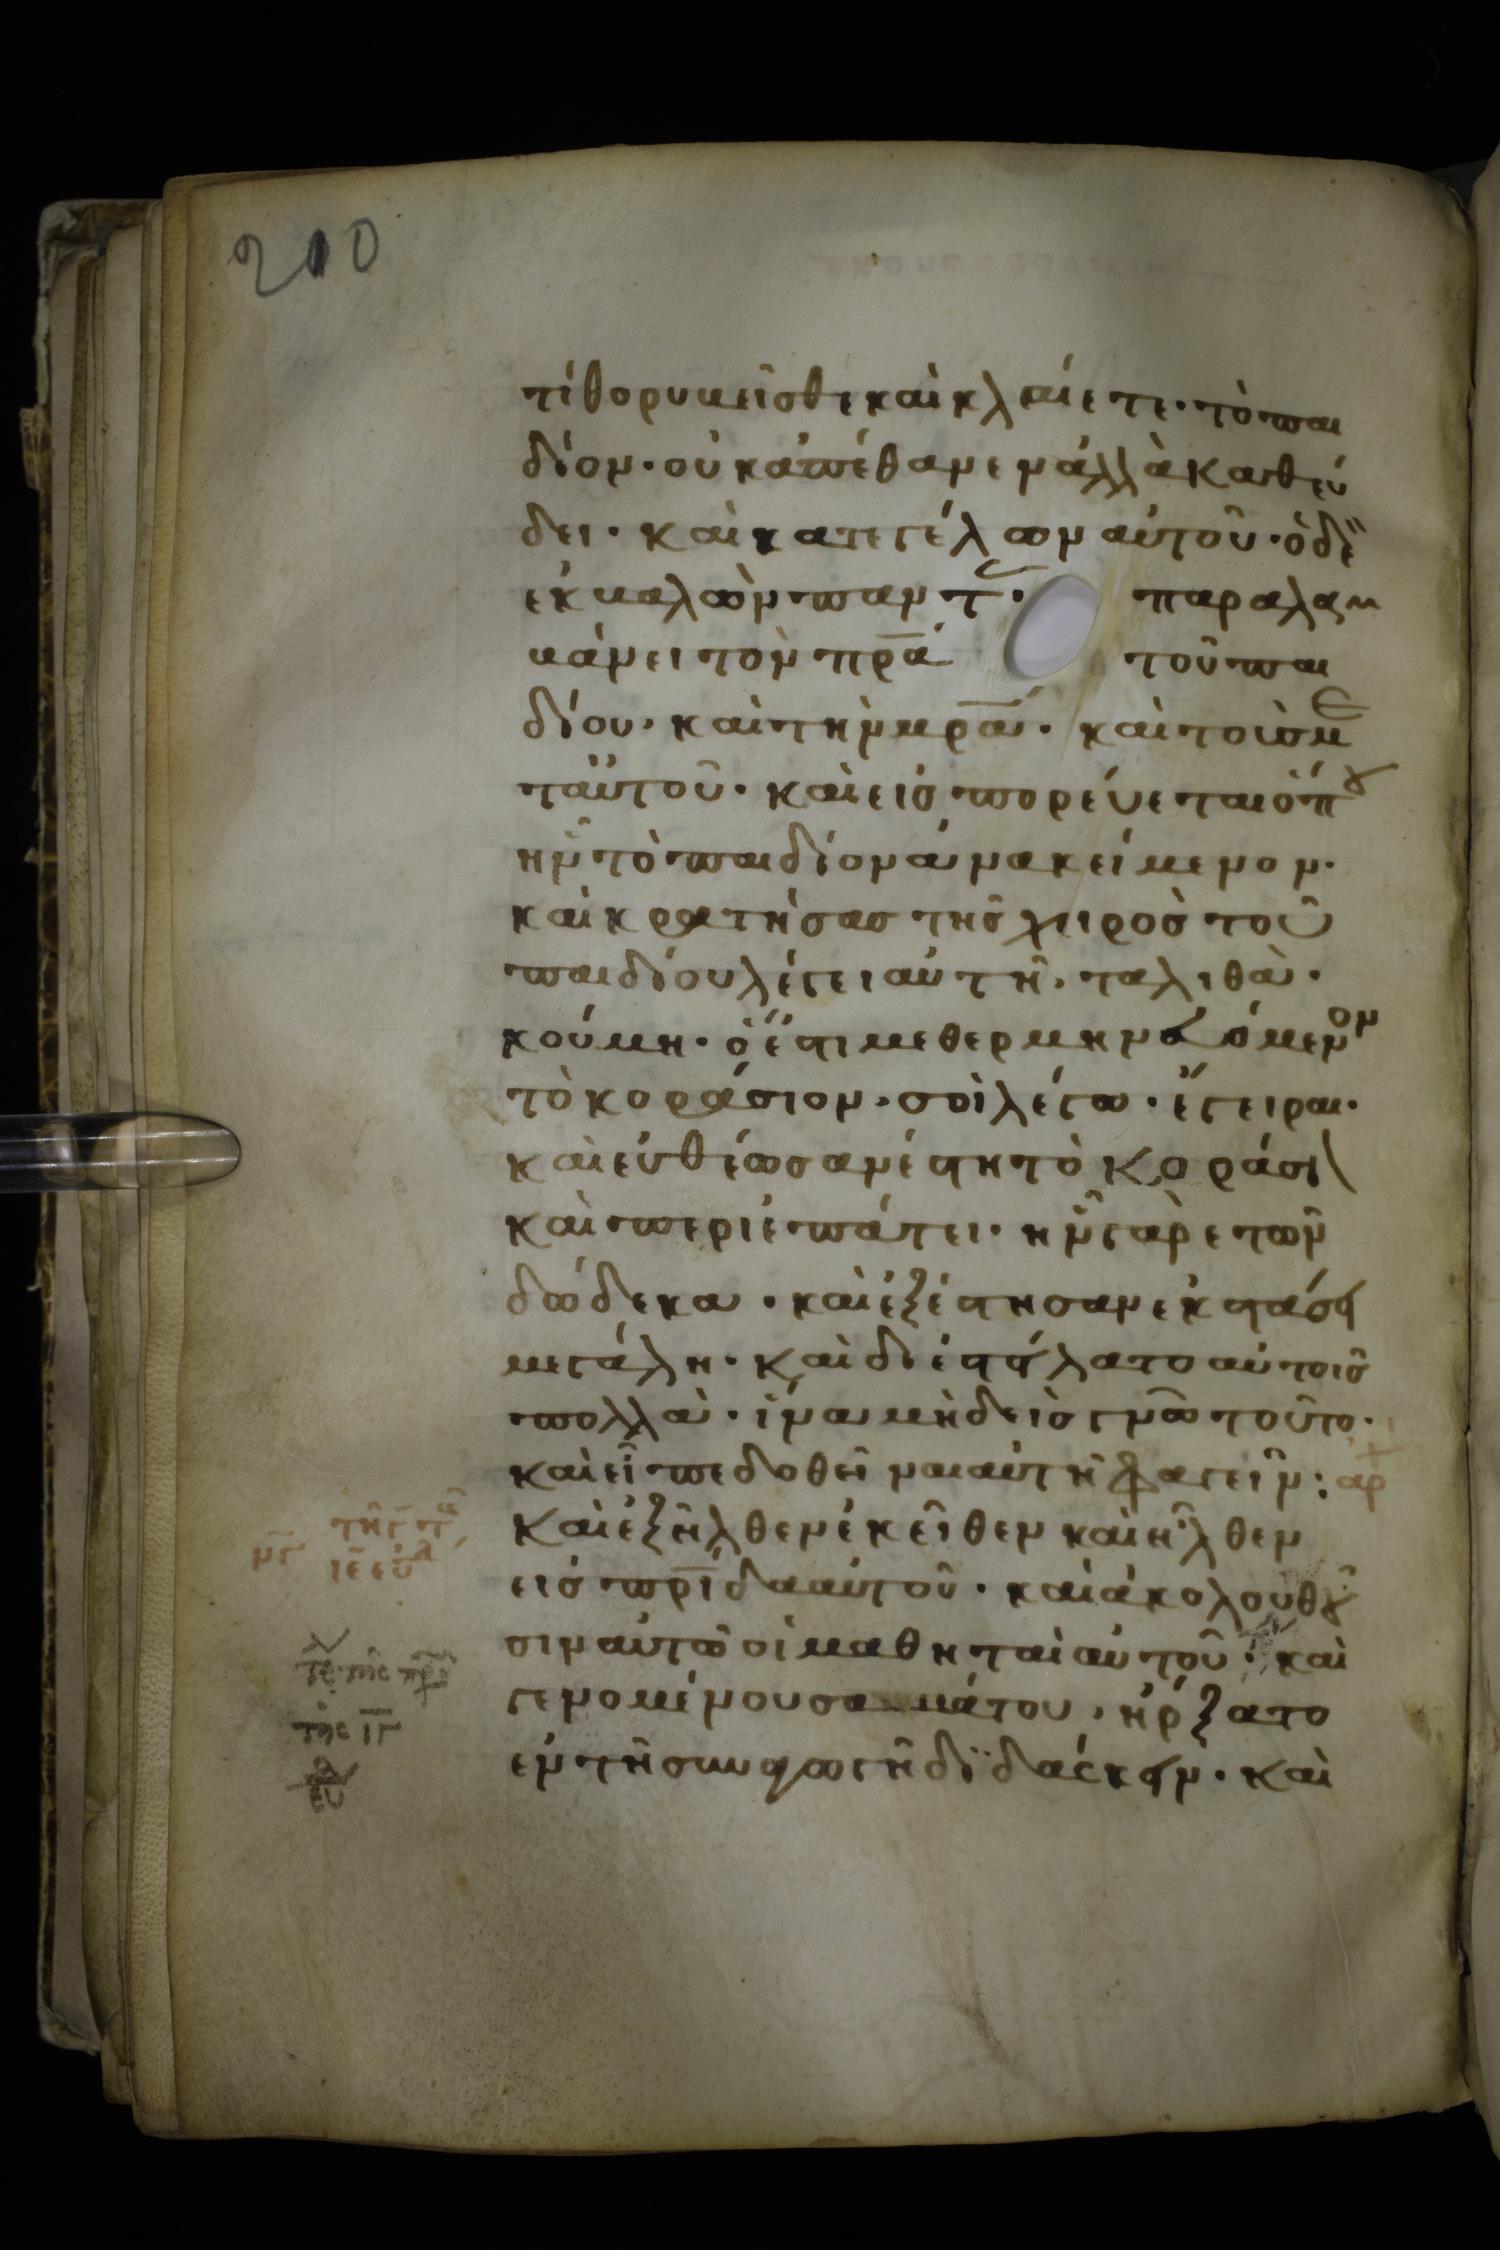 210
τί θορυβεῖσθε καὶ κλαίετε· τὸ παι
δίον· οὐκ ἀπέθανεν ἀλλὰ καθεύ
δει· καὶ κατεγέλων αὐτοῦ· ὁ δὲ
ἐκβαλὼν παντ· παραλαμ
βάνει τὸν πρ̅α τοῦ παι
δίου, καὶ τὴν μρ̅α· καὶ τοὺς με
τ αὐτοῦ· καὶ εἰσπορεύεται ὅπου
ἦν τὸ παιδίον ἀνακείμενον·
καὶ κρατήσας τῆς χειρὸς τοῦ
παιδίου λέγει αὐτῆ, ταλιθὰ·
κούμη· ὅ ἐστι μεθερμηνευόμενον
τὸ κοράσιον, σοὶ λέγω· ἔγειραι·
καὶ εὐθέως ἀνέστη τὸ κοράσι\
καὶ περιεπάτει· ἦν γὰρ ετῶν
δώδεκα· καὶ ἐξέστησαν ἐκστάσει
μεγάλη· καὶ διεστείλατο αὐτοῖς
πολλὰ· ἵνα μηδεὶς γνῶ τοῦτο·
καὶ εἶπε δοθῆναι αὐτῆ φαγεῖν: αρχ
Καὶ ἐξῆλθεν ἐκεῖθεν καὶ ἦλθεν
εἰς πρ̅ίδα αὐτοῦ· καὶ ἀκολουθοῦ
σιν αὐτῶ οἱ μαθηταὶ αὐτοῦ· καὶ
γενομένου σαββάτου, ἤρξατο
ἐν τῆ συναγωγῆ διδάσκειν· καὶ